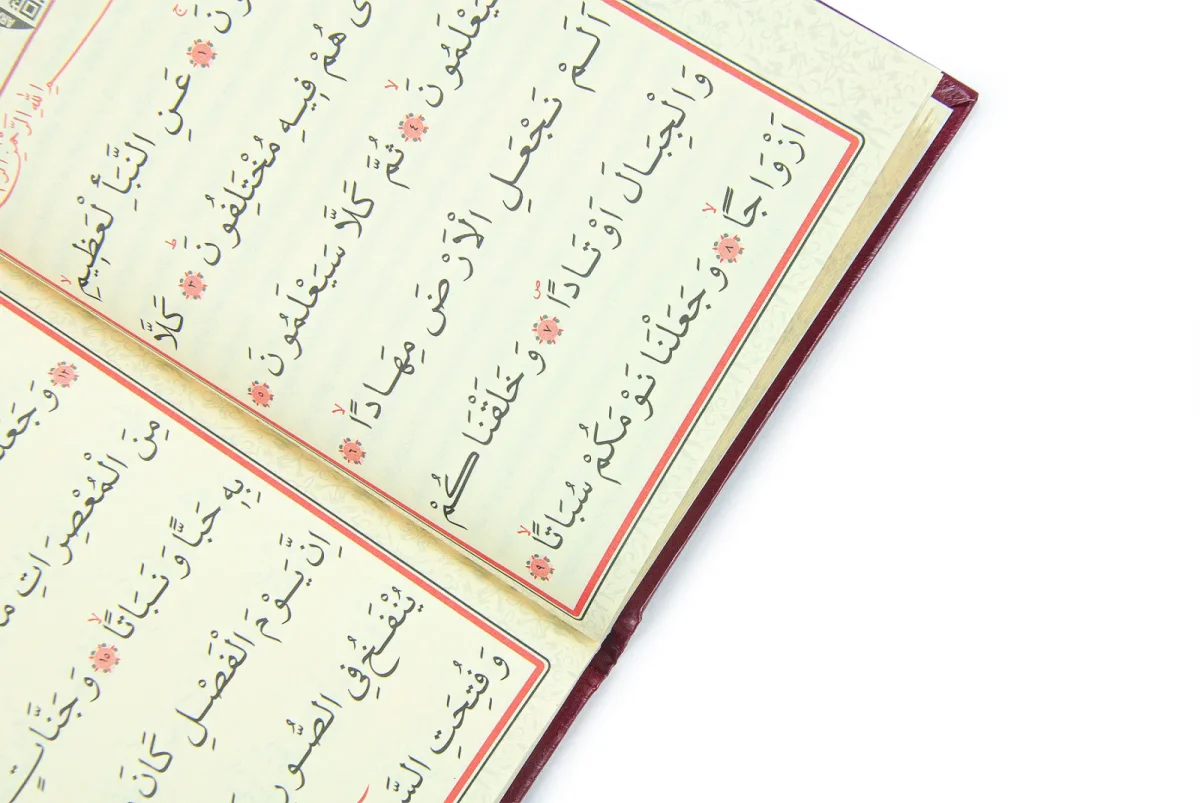 اللّٰهِ الرَّحْمٰنِ
١ عَنِ النَّبَأِ لْعَظِيمِۙ
هُمْ فِيهِ مُخْتَلِفُونَۜ ٣ كَلَّا
سَيَعْلَمُونَۙ ٤ ثُمَّ كَلَّا سَيَعْلَمُونَ ٥
اَلَمْ نَجْعَلِ الْاَرْضَ مِهَادًاۙ ٦
وَالْجِبَالَ اَوْتَادًاۖ ٧ وَخَلَقْنَاكُمْ
اَزْوَاجًاۙ ٨ وَجَعَلْنَا نَوْمَكُمْ سُبَاتًاۙ ٩
١٢ وَجَعَلْ
مِنَ الْمُعْصِرَاتِ
بِهِ حَبًّا وَنَبَاتًاۙ ١٥ وَجَنَّاتٍ
اِنَّ يَوْمَ الْفَصْلِ كَانَ
يُنْفَخُ فِي الصُّورِ
وَفُتِحَتِ